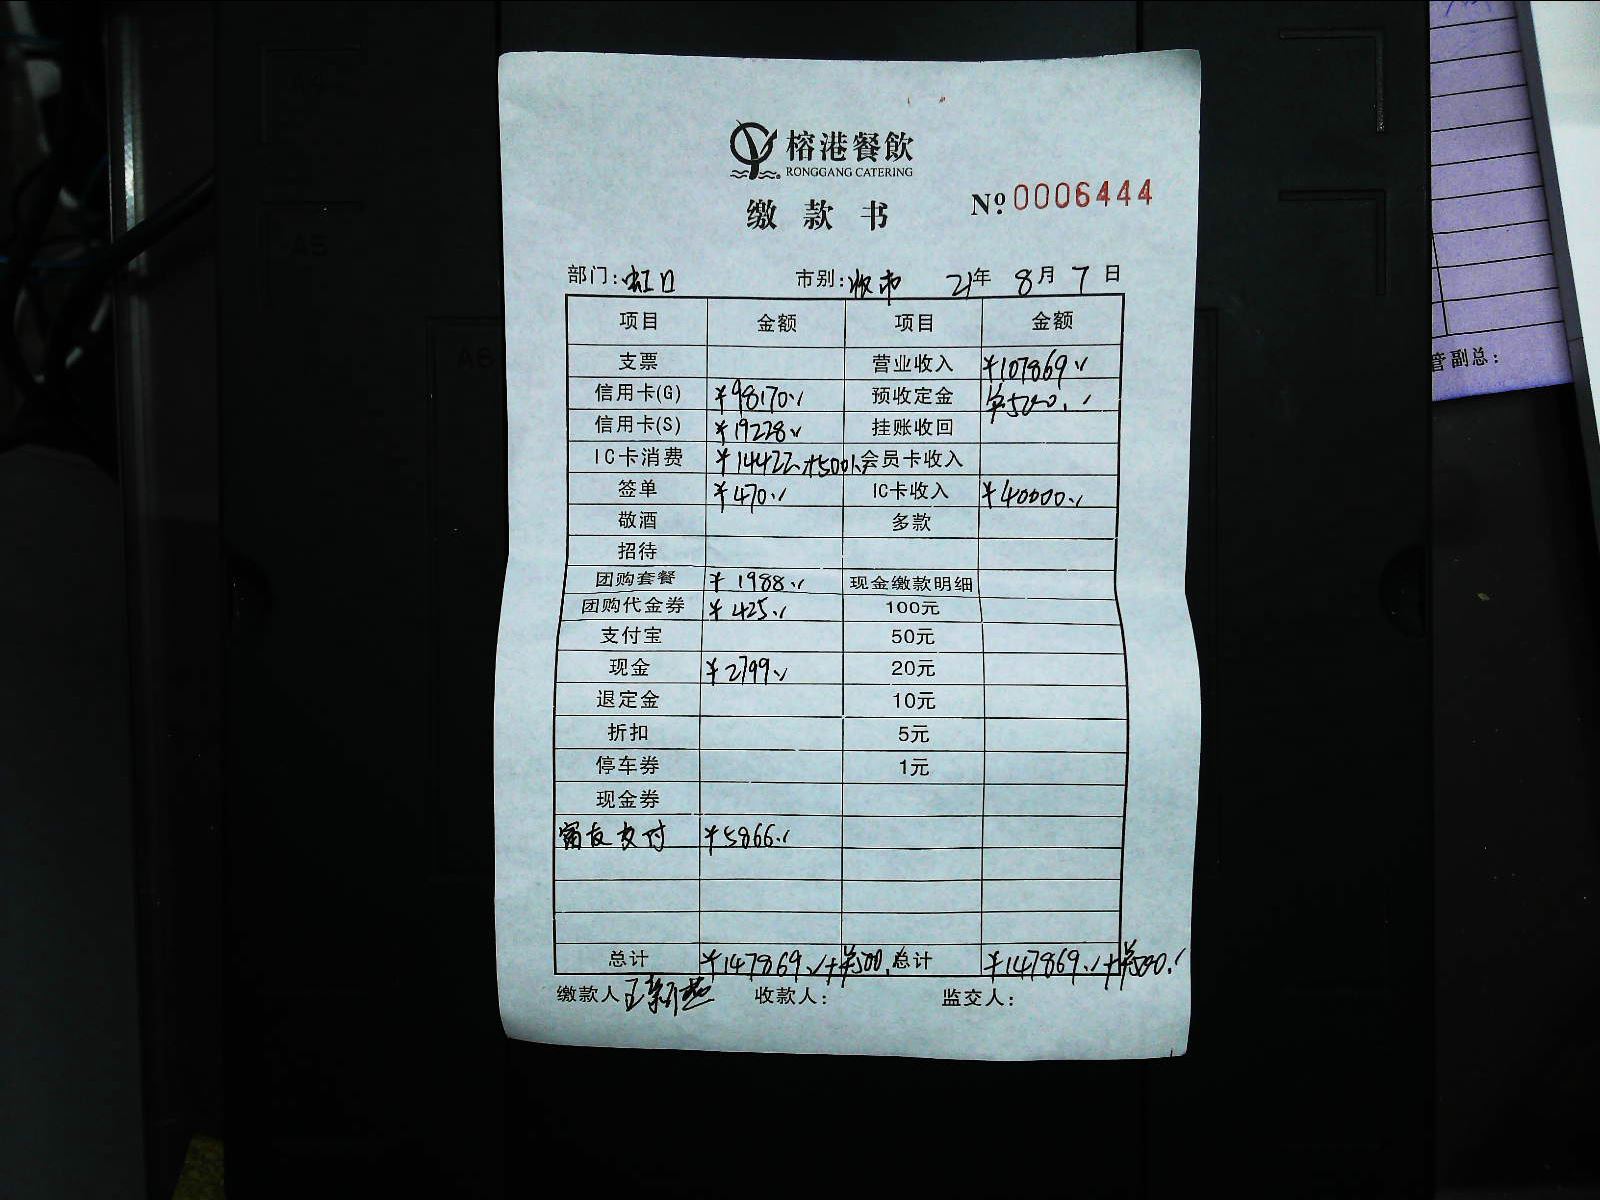 榕港餐飲
RONGGANG CATERING
缴款书
Nº 0006444
部门:虹口 市别:收市 21年 8月 7日
项目 金额 项目 金额
支票 营业收入 ¥107869.
信用卡(G) ¥98170. 预收定金 ¥500.
信用卡(S) ¥19228 挂账收回
IC卡消费 ¥14422.+500. 会员卡收入
签单 ¥470. IC卡收入 ¥40000.
敬酒 多款
招待
团购套餐 ¥1988. 现金缴款明细
团购代金券 ¥425. 100元
支付宝 50元
现金 ¥2799. 20元
退定金 10元
折扣 5元
停车券 1元
现金券
富友支付 ¥5866.
总计 ¥147869.+¥500. 总计 ¥147869.+¥500.
缴款人 王新燕 收款人: 监交人:
管副总:
A5
A6